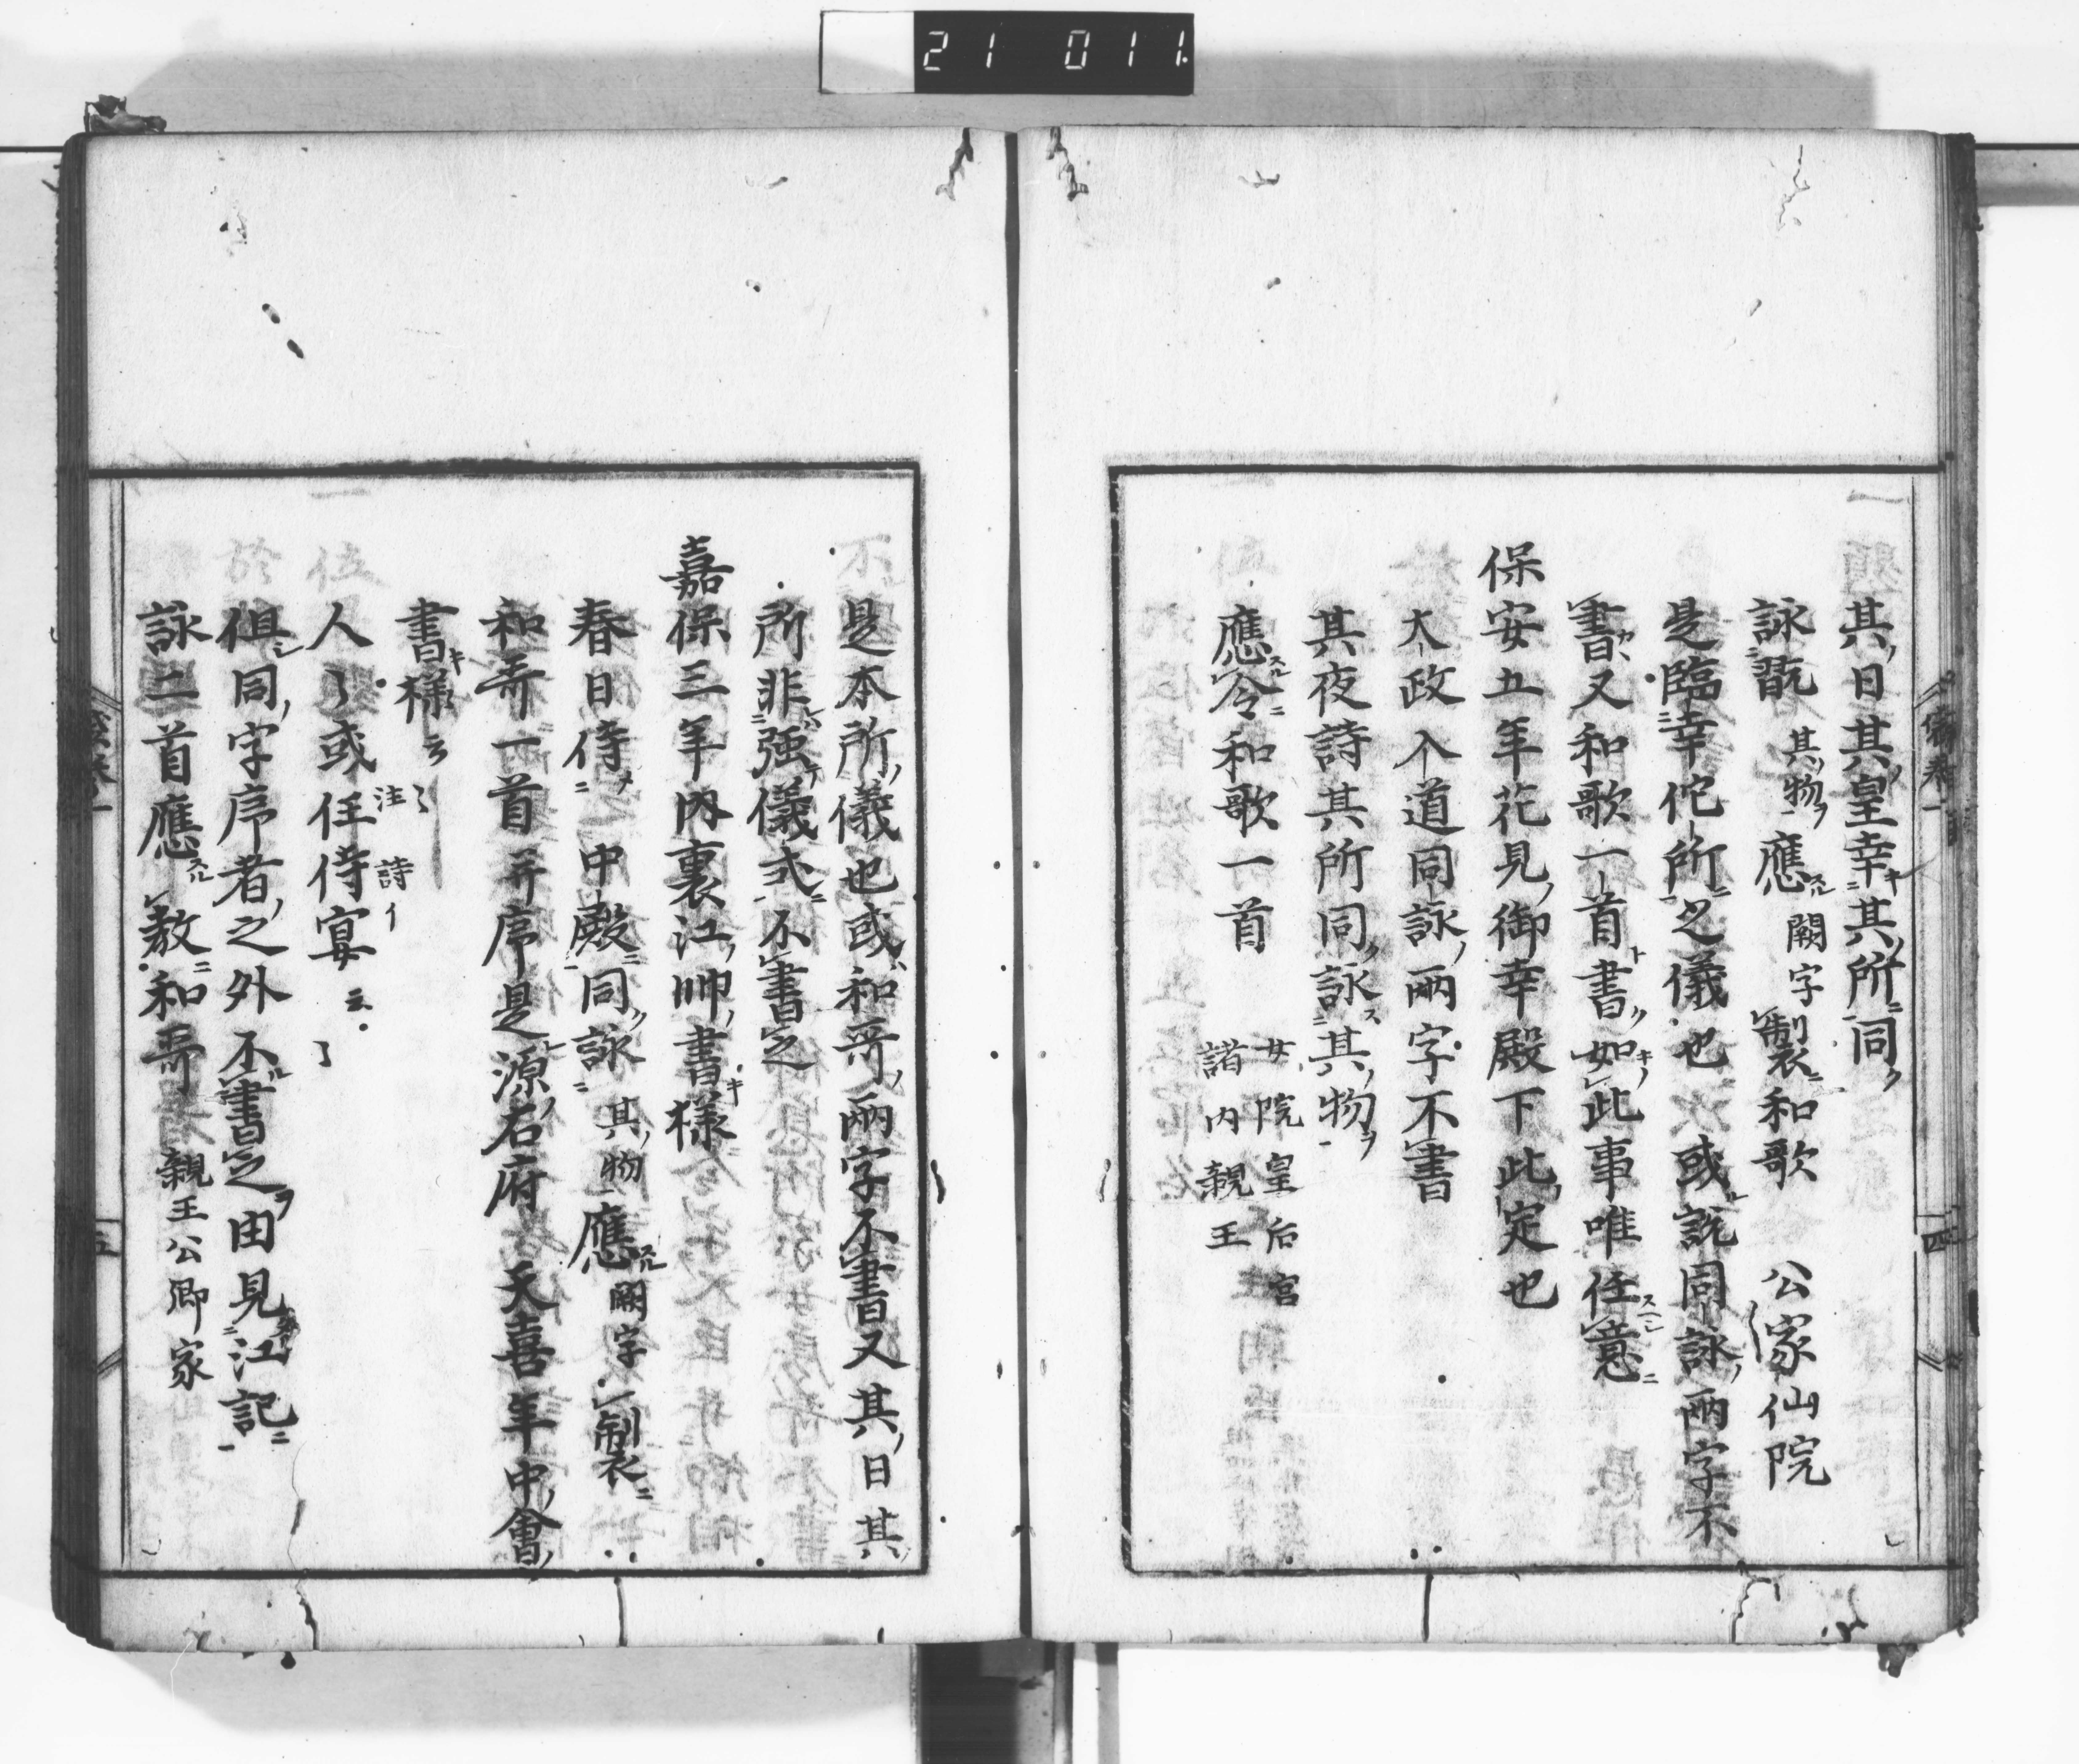 21 011
其日其皇幸其所同
詠翫其物應闕字製和歌 公家仙院
是臨幸佗所之儀也或説同詠兩字不
書又和歌一首書如此事唯任意
保安五年花見御幸殿下此定也
大政入道同詠兩字不書
其夜詩其所同詠其物
應令和歌一首 女院皇后宮
諸内親王
是本所儀也或和哥兩字不書又其日其
所非強儀式不書之
嘉保三年内裏江帥書様
春日侍中殿同詠其物應闕字製
和哥一首并序是源右府天喜年中會
書様云〻
人〻或任侍宴云〻
注 詩イ
但同字序者之外不書之由見江記
詠二首應教和哥 親王公卿家